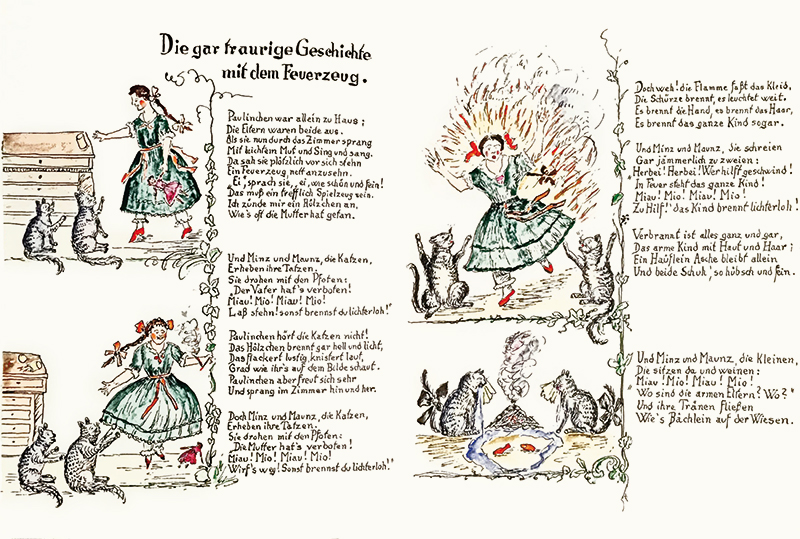 Die gar traurige Geschichte
mit dem Feuerzeug.
Paulinchen war allein zu Haus;
Die Eltern waren beide aus.
Als sie nun durch das Zimmer sprang
Mit leichtem Mut und Sing und sang.
Da sah sie plötzlich vor sich stehn
Ein Feuerzeug, nett anzusehn.
"Ei", sprach sie, "ei, wie schön und fein!
Das muß ein trefflich Spielzeug sein.
Ich zünde mir ein Hölzchen an,
Wie's oft die Mutter hat getan.
Und Minz und Maunz, die Katzen,
Erheben ihre Tatzen.
Sie drohen mit den Pfoten:
"Der Vater hat's verboten!
Miau! Mio! Miau! Mio!
Laß stehn! sonst brennst du lichterloh!"
Paulinchen hört die Katzen nicht!
Das Hölzchen brennt gar hell und licht,
Das flackert lustig, knistert laut,
Grad wie ihr's auf dem Bilde schaut.
Paulinchen aber freut sich sehr
Und sprang im Zimmer hin und her.
Doch Minz und Maunz, die Katzen,
Erheben ihre Tatzen.
Sie drohen mit den Pfoten:
"Die Mutter hat's verboten!
Miau! Mio! Miau! Mio!
Wirf's weg! Sonst brennst du lichterloh!"
Doch weh! die Flamme faßt das Kleid,
Die Schürze brennt, es leuchtet weit.
Es brennt die Hand, es brennt das Haar,
Es brennt das ganze Kind sogar.
Und Minz und Maunz, Die schreien
Gar jämmerlich zu zweien:
Herbei! Herbei! Wer hilft geschwind!
In Feuer steht das ganze Kind!
Miau! Mio! Miau! Mio!
Zu Hilf'! das Kind brennt lichterloh!
Verbrannt ist alles ganz und gar,
Das arme Kind mit Haut und Haar;
Ein Häuflein Asche bleibt allein
Und beide Schuh', so hübsch und fein.
Und Minz und Maunz, die Kleinen,
Die sitzen da und weinen:
"Miau! Mio! Miau! Mio!
"Wo sind die armen Eltern? Wo?"
Und ihre Tränen fließen
Wie's Bächlein auf der Wiesen.